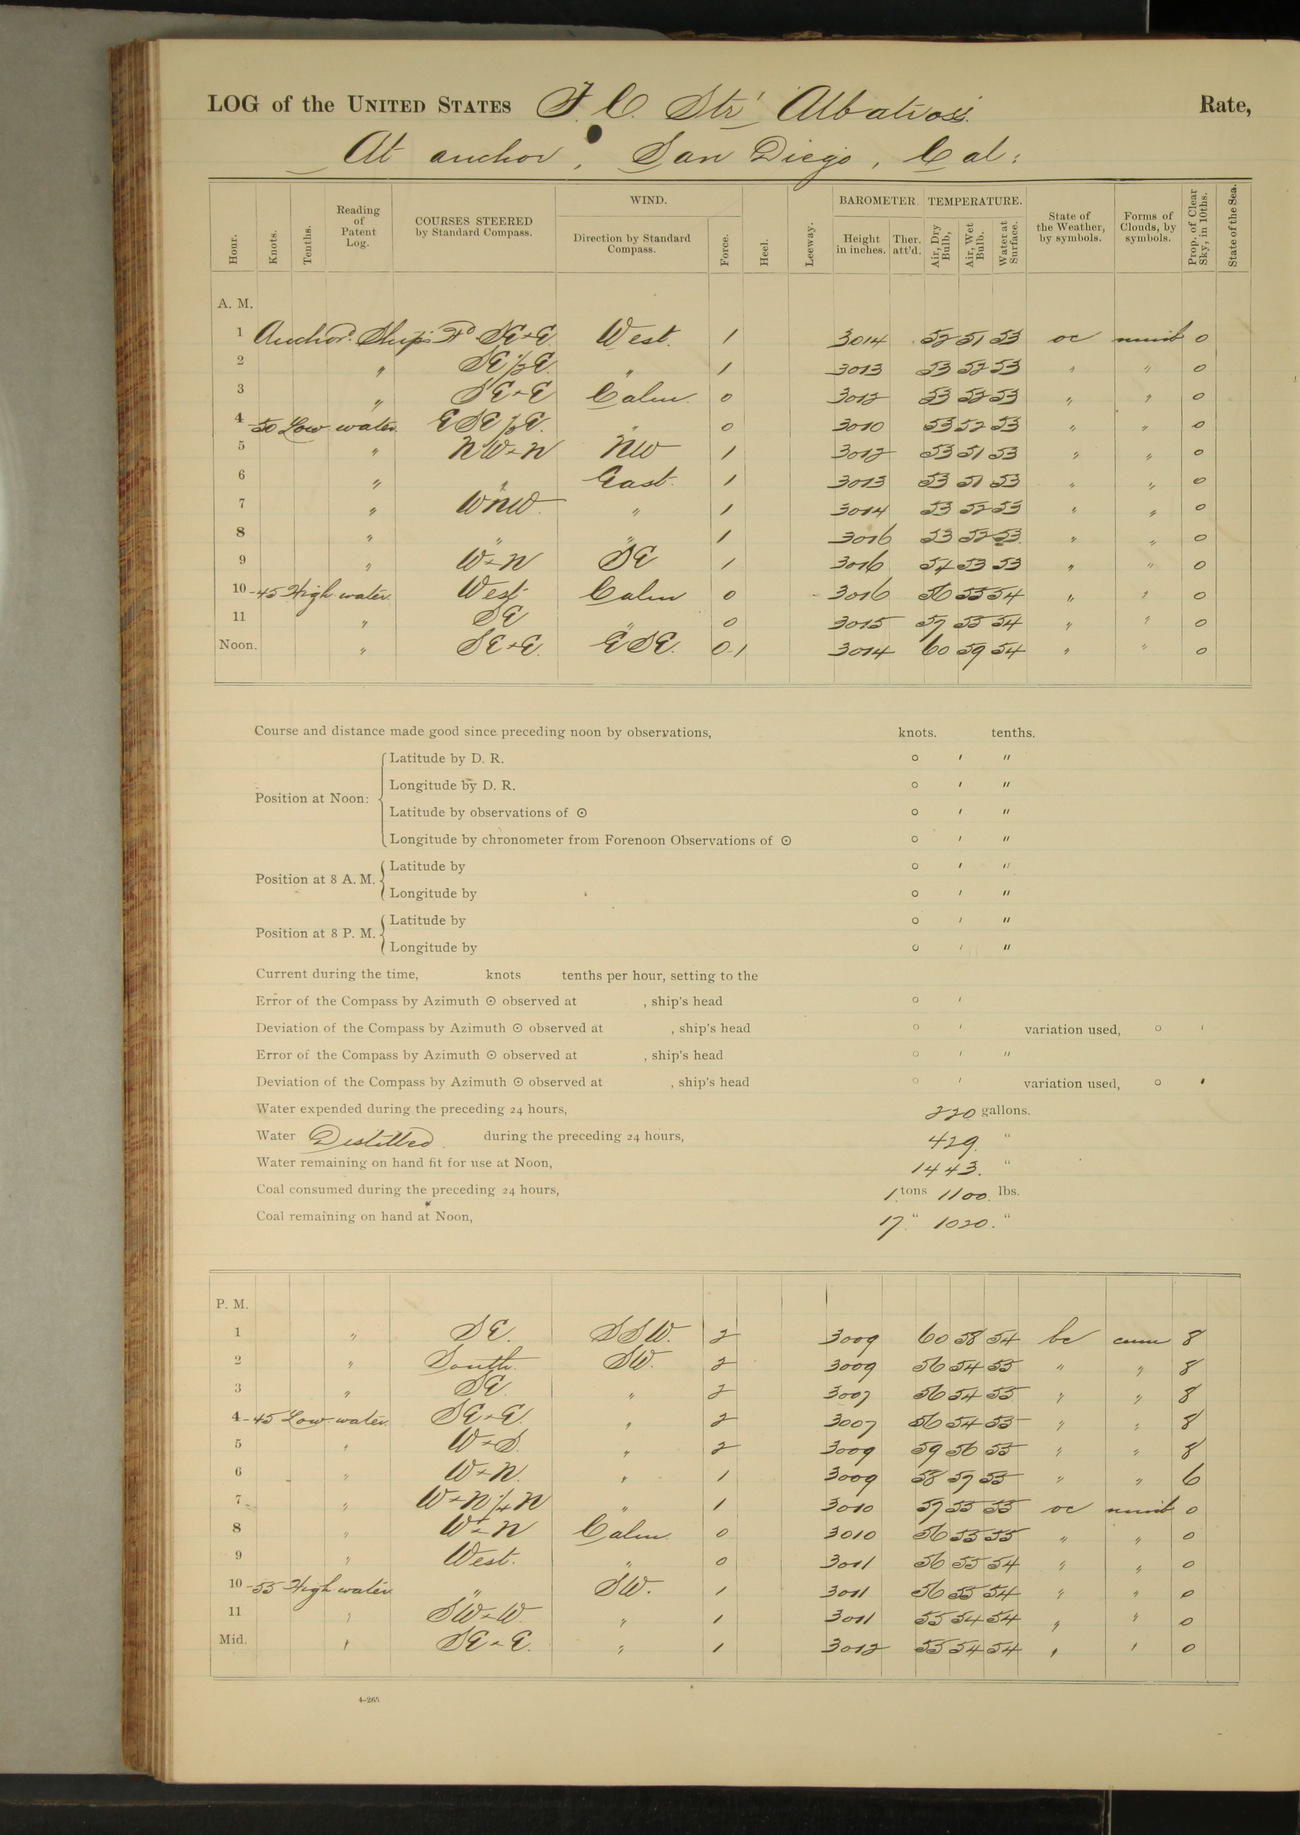 LOG of the UNITED STATES F. C. Str' Albatross. Rate,
At anchor, San Diego, Cal:
Hour. Knots. Tenths. Reading of Patent Log. COURSES STEERED by Standard Compass. WIND. Direction by Standard Compass. Force. Heel. Leeway. BAROMETER. Height in inches. Ther. att'd. TEMPERATURE. Air, Dry Bulb, Air, Wet Bulb. Water at Surface. State of the Weather, by symbols. Forms of Clouds, by symbols. Prop. of Clear Sky, in 10ths. State of the Sea.
A. M.
1 Anchor'd. Ship's H'd SE x E. West. 1 3014 52 51 53 oc nimb 0
2 " SE ½ E. " 1 3013 53 52 53 " " 0
3 " SE x E Calm. 0 3012 53 52 53 " " 0
4 -50 Low water. ESE ½ E. " 0 3010 53 52 53 " " 0
5 " NW x N NW 1 3012 53 51 53 " " 0
6 " " East. 1 3013 53 51 53 " " 0
7 " WNW. " 1 3014 53 52 53 " " 0
8 " " " 1 3016 53 52 53 " " 0
9 " W x N SE 1 3016 54 53 53 " " 0
10 -45 High water. West Calm 0 3016 56 55 54 " " 0
11 " SE " 0 3015 57 55 54 " " 0
Noon. " SE x E. ESE. 0-1 3014 60 59 54 " " 0
Course and distance made good since preceding noon by observations, knots. tenths.
Position at Noon: Latitude by D. R. ° ′ ″
Longitude by D. R. ° ′ ″
Latitude by observations of ☉ ° ′ ″
Longitude by chronometer from Forenoon Observations of ☉ ° ′ ″
Position at 8 A. M. Latitude by ° ′ ″
Longitude by ° ′ ″
Position at 8 P. M. Latitude by ° ′ ″
Longitude by ° ′ ″
Current during the time, knots tenths per hour, setting to the
Error of the Compass by Azimuth ☉ observed at , ship's head ° ′
Deviation of the Compass by Azimuth ☉ observed at , ship's head ° ′ variation used, ° ′
Error of the Compass by Azimuth ☉ observed at , ship's head ° ′ ″
Deviation of the Compass by Azimuth ☉ observed at , ship's head ° ′ variation used, ° ′
Water expended during the preceding 24 hours, 220 gallons.
Water Distilled during the preceding 24 hours, 429. "
Water remaining on hand fit for use at Noon, 1443. "
Coal consumed during the preceding 24 hours, 1 tons 1100. lbs.
Coal remaining on hand at Noon, 17. " 1020. "
P. M.
1 " SE. SSW. 2 3009 60 58 54 bc cum 8
2 " South. SW. 2 3009 56 54 55 " " 8
3 " SE. " 2 3007 56 54 55 " " 8
4 -45 Low water. SE x E. " 2 3007 56 54 55 " " 8
5 " W x S. " 2 3009 59 56 55 " " 8
6 " W x N. " 1 3009 58 57 55 " " 6
7 " W x N ¼ N " 1 3010 57 55 55 oc nimb 0
8 " W x N Calm 0 3010 56 55 55 " " 0
9 " West. " 0 3011 56 55 54 " " 0
10 -55 High water " SW. 1 3011 56 55 54 " " 0
11 " SW x W. " 1 3011 55 54 54 " " 0
Mid. " SE x E. " 1 3012 55 54 54 " " 0
4-265